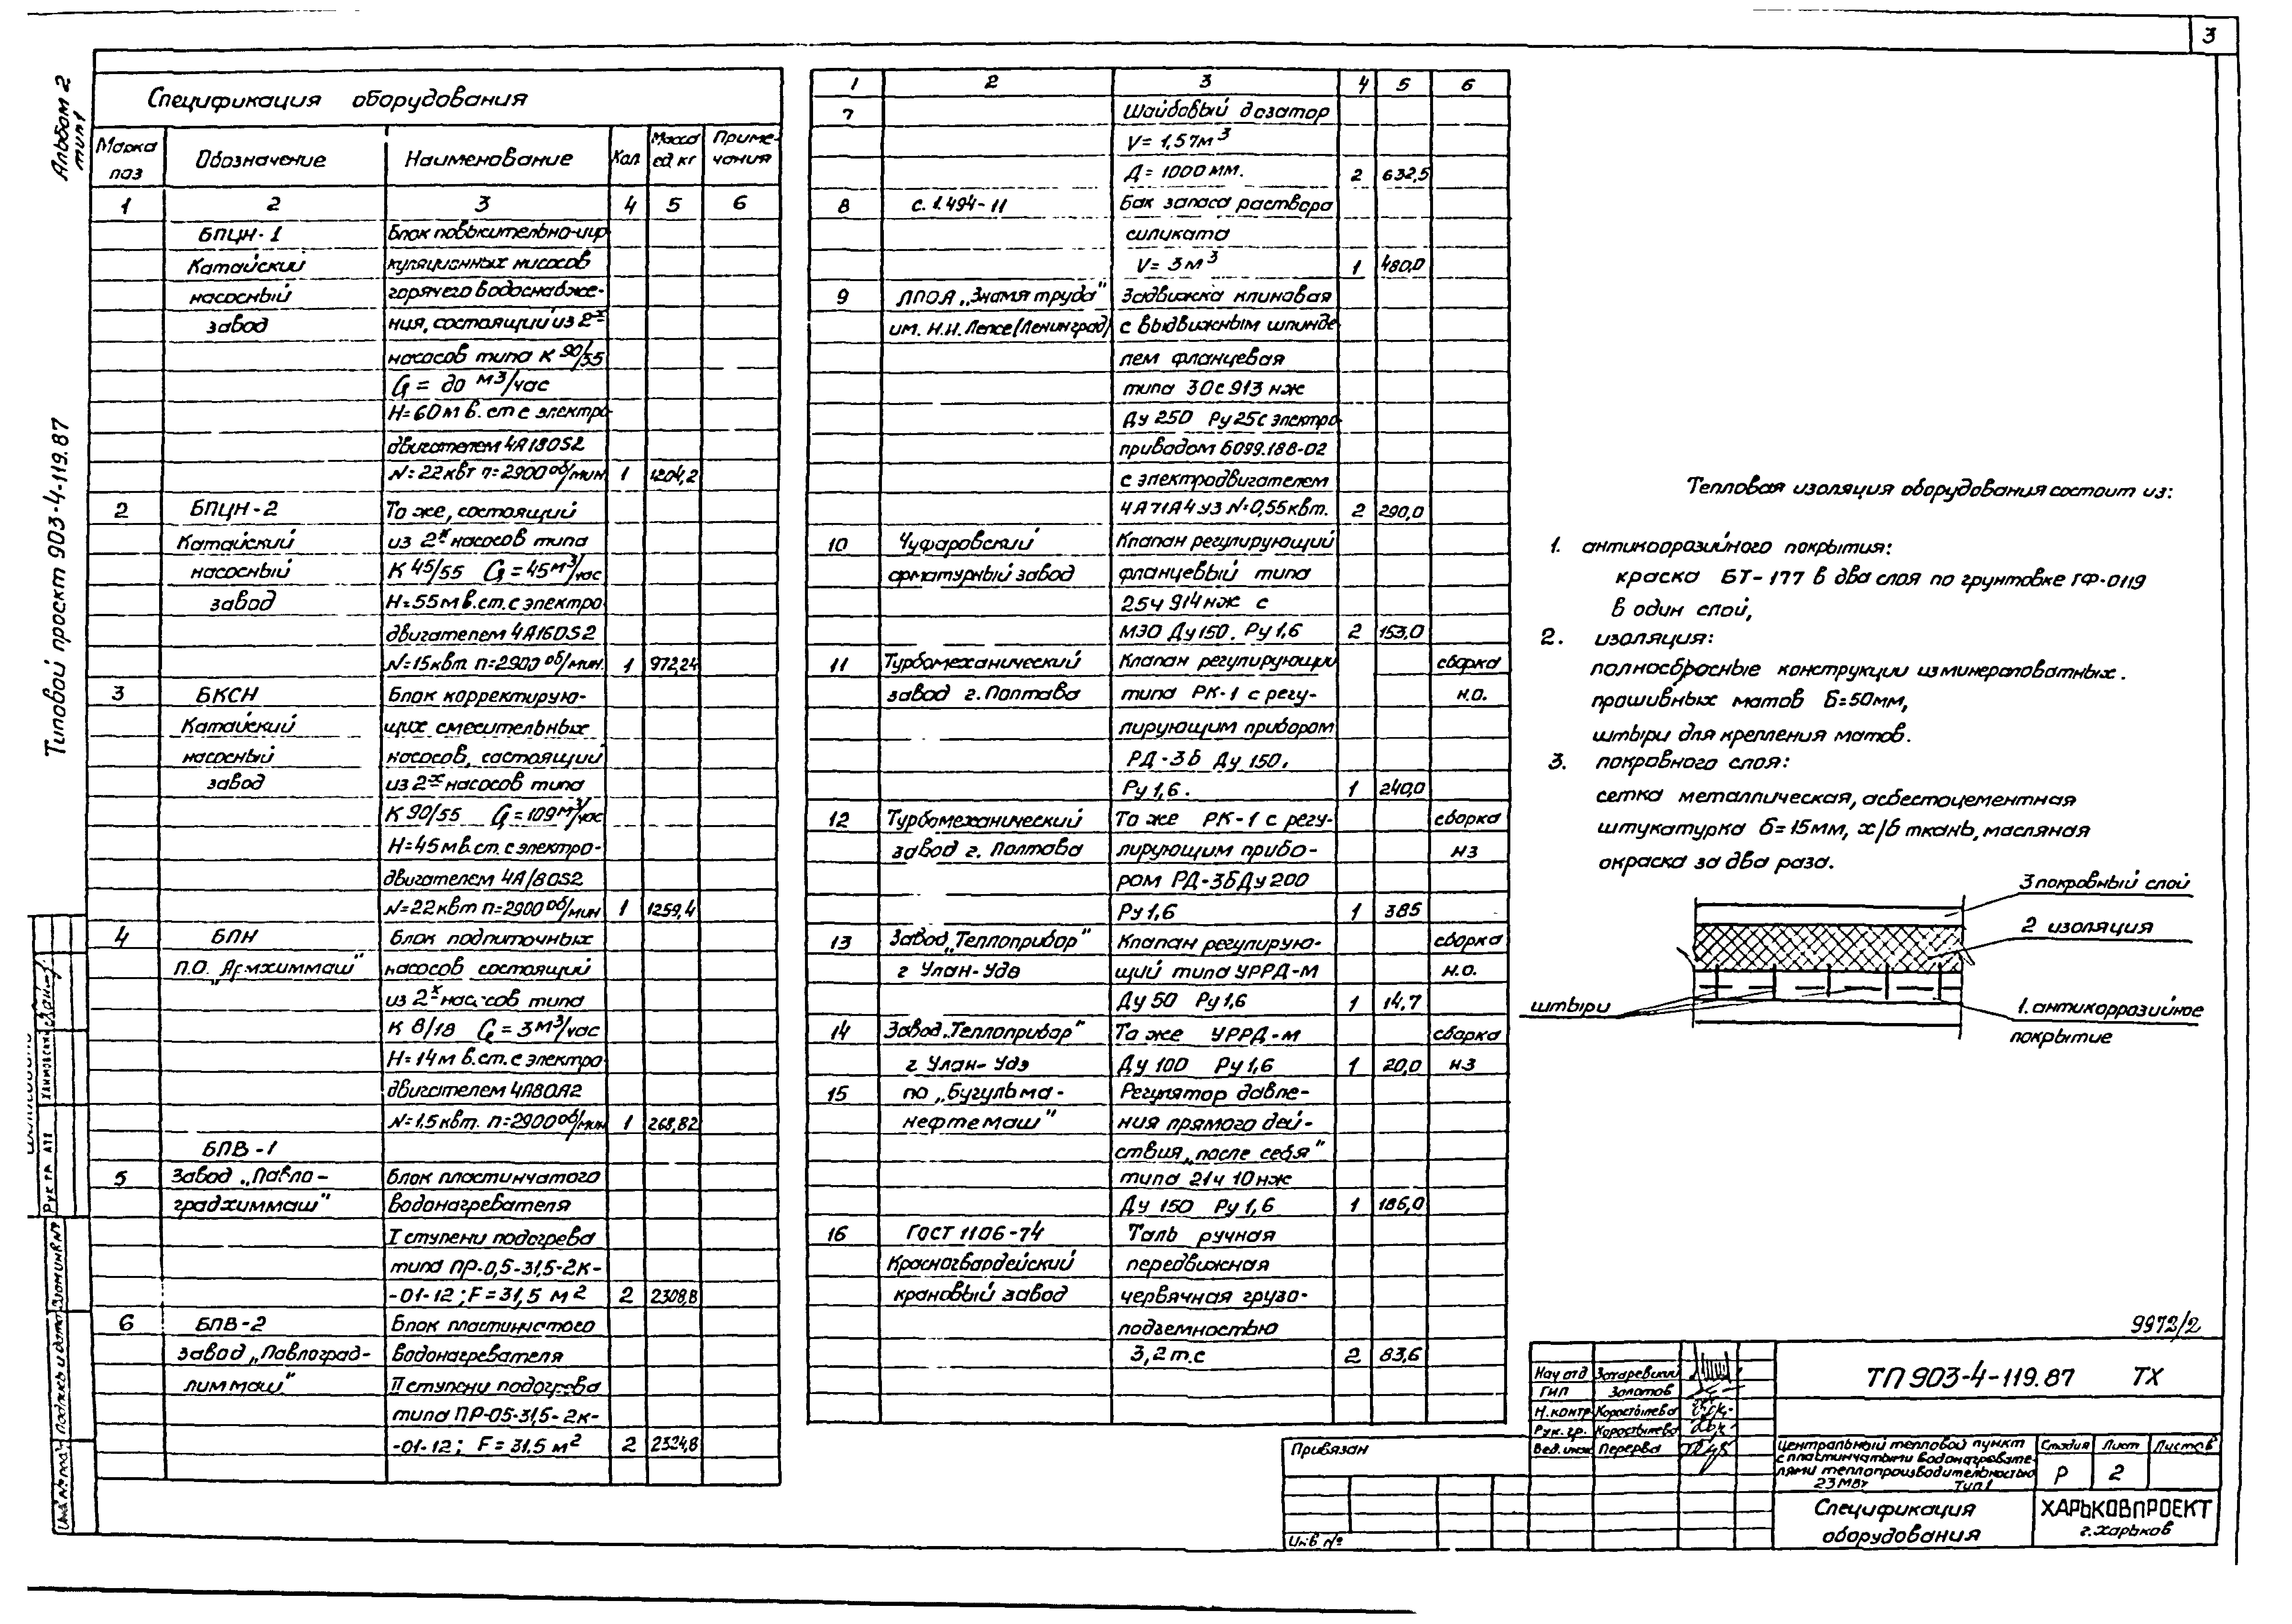 3
Альбом 2
тип 1
Типовой проект 903-4-119.87
Спецификация оборудования
Марка поз Обозначение Наименование Кол Масса ед кг Приме-чания
1 2 3 4 5 6
БПЦН-1 Блок повысительно-цир
Катайский куляционных насосов
насосный горячего водоснабже-
завод ния, состоящий из 2х
насосов типа К 90/55
G = до м3/час
Н=60м в. ст с электро-
двигателем 4А180S2
N=22квт п=2900 об/мин 1 1204,2
2 БПЦН-2 То же, состоящий
Катайский из 2х насосов типа
насосный К 45/55 G=45м3/час
завод Н=55м в.ст. с электро
двигателем 4А160S2
N=15квт п=2900 об/мин. 1 972,24
3 БКСН Блок корректирую-
Катайский щих смесительных
насосный насосов, состоящий
завод из 2х насосов типа
К 90/55 G=109м3/час
Н=45м в.ст. с электро-
двигателем 4А180S2
N=22квт п=2900 об/мин 1 1259,4
4 БПН Блок подпиточных
П.О. „Армхиммаш" насосов состоящий
из 2х нас-сов типа
К 8/18 G=3м3/час
Н=14м в.ст. с электро
двигателем 4А80А2
N=1.5квт. п=2900 об/мин 1 268,82
БПВ-1
5 Завод „Павло- Блок пластинчатого
градхиммаш" водонагревателя
I ступени подогрева
типа ПР-0,5-31,5-2к-
-01-12; F=31,5 м2 2 2308,8
6 БПВ-2 Блок пластинчатого
завод „Павлоград- водонагревателя
лиммаш" II ступени подогрева
типа ПР-05-31,5-2к-
-01-12; F=31.5 м2 2 2324,8
1 2 3 4 5 6
7 Шайбовый дозатор
V=1,57м3
Д=1000мм. 2 632,5
8 с. 1.494-11 Бак запаса раствора
силиката
V=3м3 1 480,0
9 ЛПОЯ „Знамя труда" Задвижка клиновая
им. Н.Н. Лепсе (Ленинград) с выдвижным шпинде
лем фланцевая
типа 30с 913 нж
Ду 250 Ру 25 с электро
приводом Б099.188-02
с электродвигателем
4А71А4У3 N=0,55квт. 2 290,0
10 Чуфаровский Клапан регулирующий
арматурный завод фланцевый типа
25ч 914нж с
МЭО Ду 150. Ру 1,6 2 153,0
11 Турбомеханический Клапан регулирующий сборка
завод г. Полтава типа РК-1 с регу- н.о.
лирующим прибором
РД-3Б Ду 150.
Ру 1,6. 1 240,0
12 Турбомеханический То же РК-1 с регу- сборка
завод г. Полтава лирующим прибо- нз
ром РД-3Б Ду 200
Ру 1,6 1 385
13 Завод „Теплоприбор" Клапан регулирую- сборка
г Улан-Удэ щий типа УРРД-М н.о.
Ду 50 Ру 1,6 1 14,7
14 Завод „Теплоприбор" То же УРРД-М сборка
г Улан-Удэ Ду 100 Ру 1,6 1 20,0 нз
15 по „Бугульма- Регулятор давле-
нефтемаш" ния прямого дей-
ствия „после себя"
типа 21ч 10нж
Ду 150 Ру 1,6 1 186,0
16 ГОСТ 1106-74 Таль ручная
Красногвардейский передвижная
крановый завод червячная грузо-
подъемностью
3,2 т.с 2 83,6
Тепловая изоляция оборудования состоит из:
1. антикоорозийного покрытия:
краска БТ-177 в два слоя по грунтовке ГФ-0119
в один слой,
2. изоляция:
полносборные конструкции из минераловатных.
прошивных матов б=50мм,
штыри для крепления матов.
3. покровного слоя:
сетка металлическая, асбестоцементная
штукатурка б=15мм, х/б ткань, масляная
окраска за два раза.
3 покровный слой
2 изоляция
штыри
1. антикоррозийное
покрытие
9972/2
Нач отд Захаревский
ГИП Золотов
Н.контр Коростылева
Рук. гр. Коростылева
Вед. инж Перерва
ТП 903-4-119.87 ТХ
Привязан
Инв №
Центральный тепловой пункт
с пластинчатыми водонагревате-
лями теплопроизводительностью
23 МВт Тип 1
Стадия Лист Листов
Р 2
Спецификация
оборудования
ХАРЬКОВПРОЕКТ
г. Харьков
Рук гр.
Инв № подл Подпись и дата Взам инв №